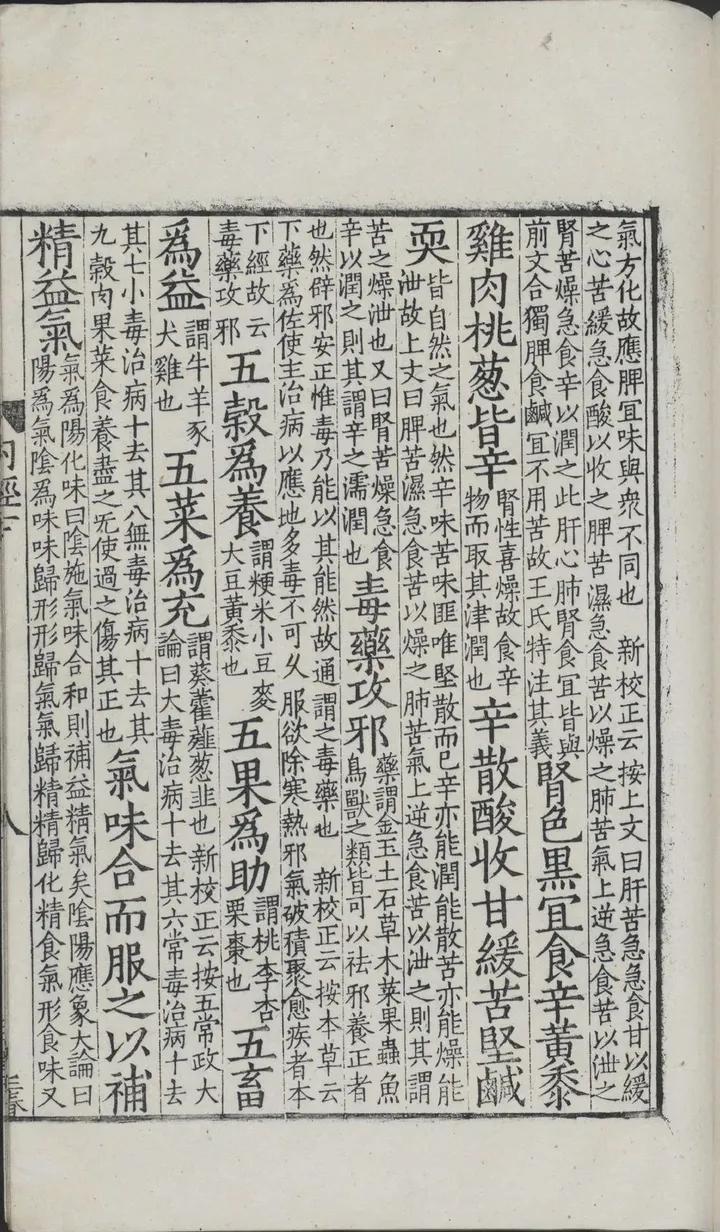 氣方化故應脾宜味與衆不同也　新校正云按上文曰肝苦急急食甘以緩
之心苦緩急食酸以收之脾苦濕急食苦以燥之肺苦氣上逆急食苦以泄之
腎苦燥急食辛以潤之此肝心肺腎食宜皆與
前文合獨脾食鹹宜不用苦故王氏特注其義
腎色黑宜食辛黃黍
雞肉桃葱皆辛
腎性喜燥故食辛
物而取其津潤也
辛散酸收甘緩苦堅鹹
耎
皆自然之氣也然辛味苦味匪唯堅散而已辛亦能潤能散苦亦能燥能
泄故上文曰脾苦濕急食苦以燥之肺苦氣上逆急食苦以泄之則其謂
苦之燥泄也又曰腎苦燥急食
辛以潤之則其謂辛之濡潤也
毒藥攻邪
藥謂金玉土石草木菜果蟲魚
鳥獸之類皆可以祛邪養正者
也然辟邪安正惟毒乃能以其能然故通謂之毒藥也　新校正云按本草云
下藥爲佐使主治病以應地多毒不可久服欲除寒熱邪氣破積聚愈疾者本
下經故云
毒藥攻邪
五穀爲養
謂粳米小豆麥
大豆黃黍也
五果爲助
謂桃李杏
栗棗也
五畜
爲益
謂牛羊豕
犬雞也
五菜爲充
謂葵藿薤葱韭也新校正云按五常政大
論曰大毒治病十去其六常毒治病十去
其七小毒治病十去其八無毒治病十去其
九穀肉果菜食養盡之旡使過之傷其正也
氣味合而服之以補
精益氣
氣爲陽化味曰陰施氣味合和則補益精氣矣陰陽應象大論曰
陽爲氣陰爲味味歸形形歸氣氣歸精精歸化精食氣形食味又
八